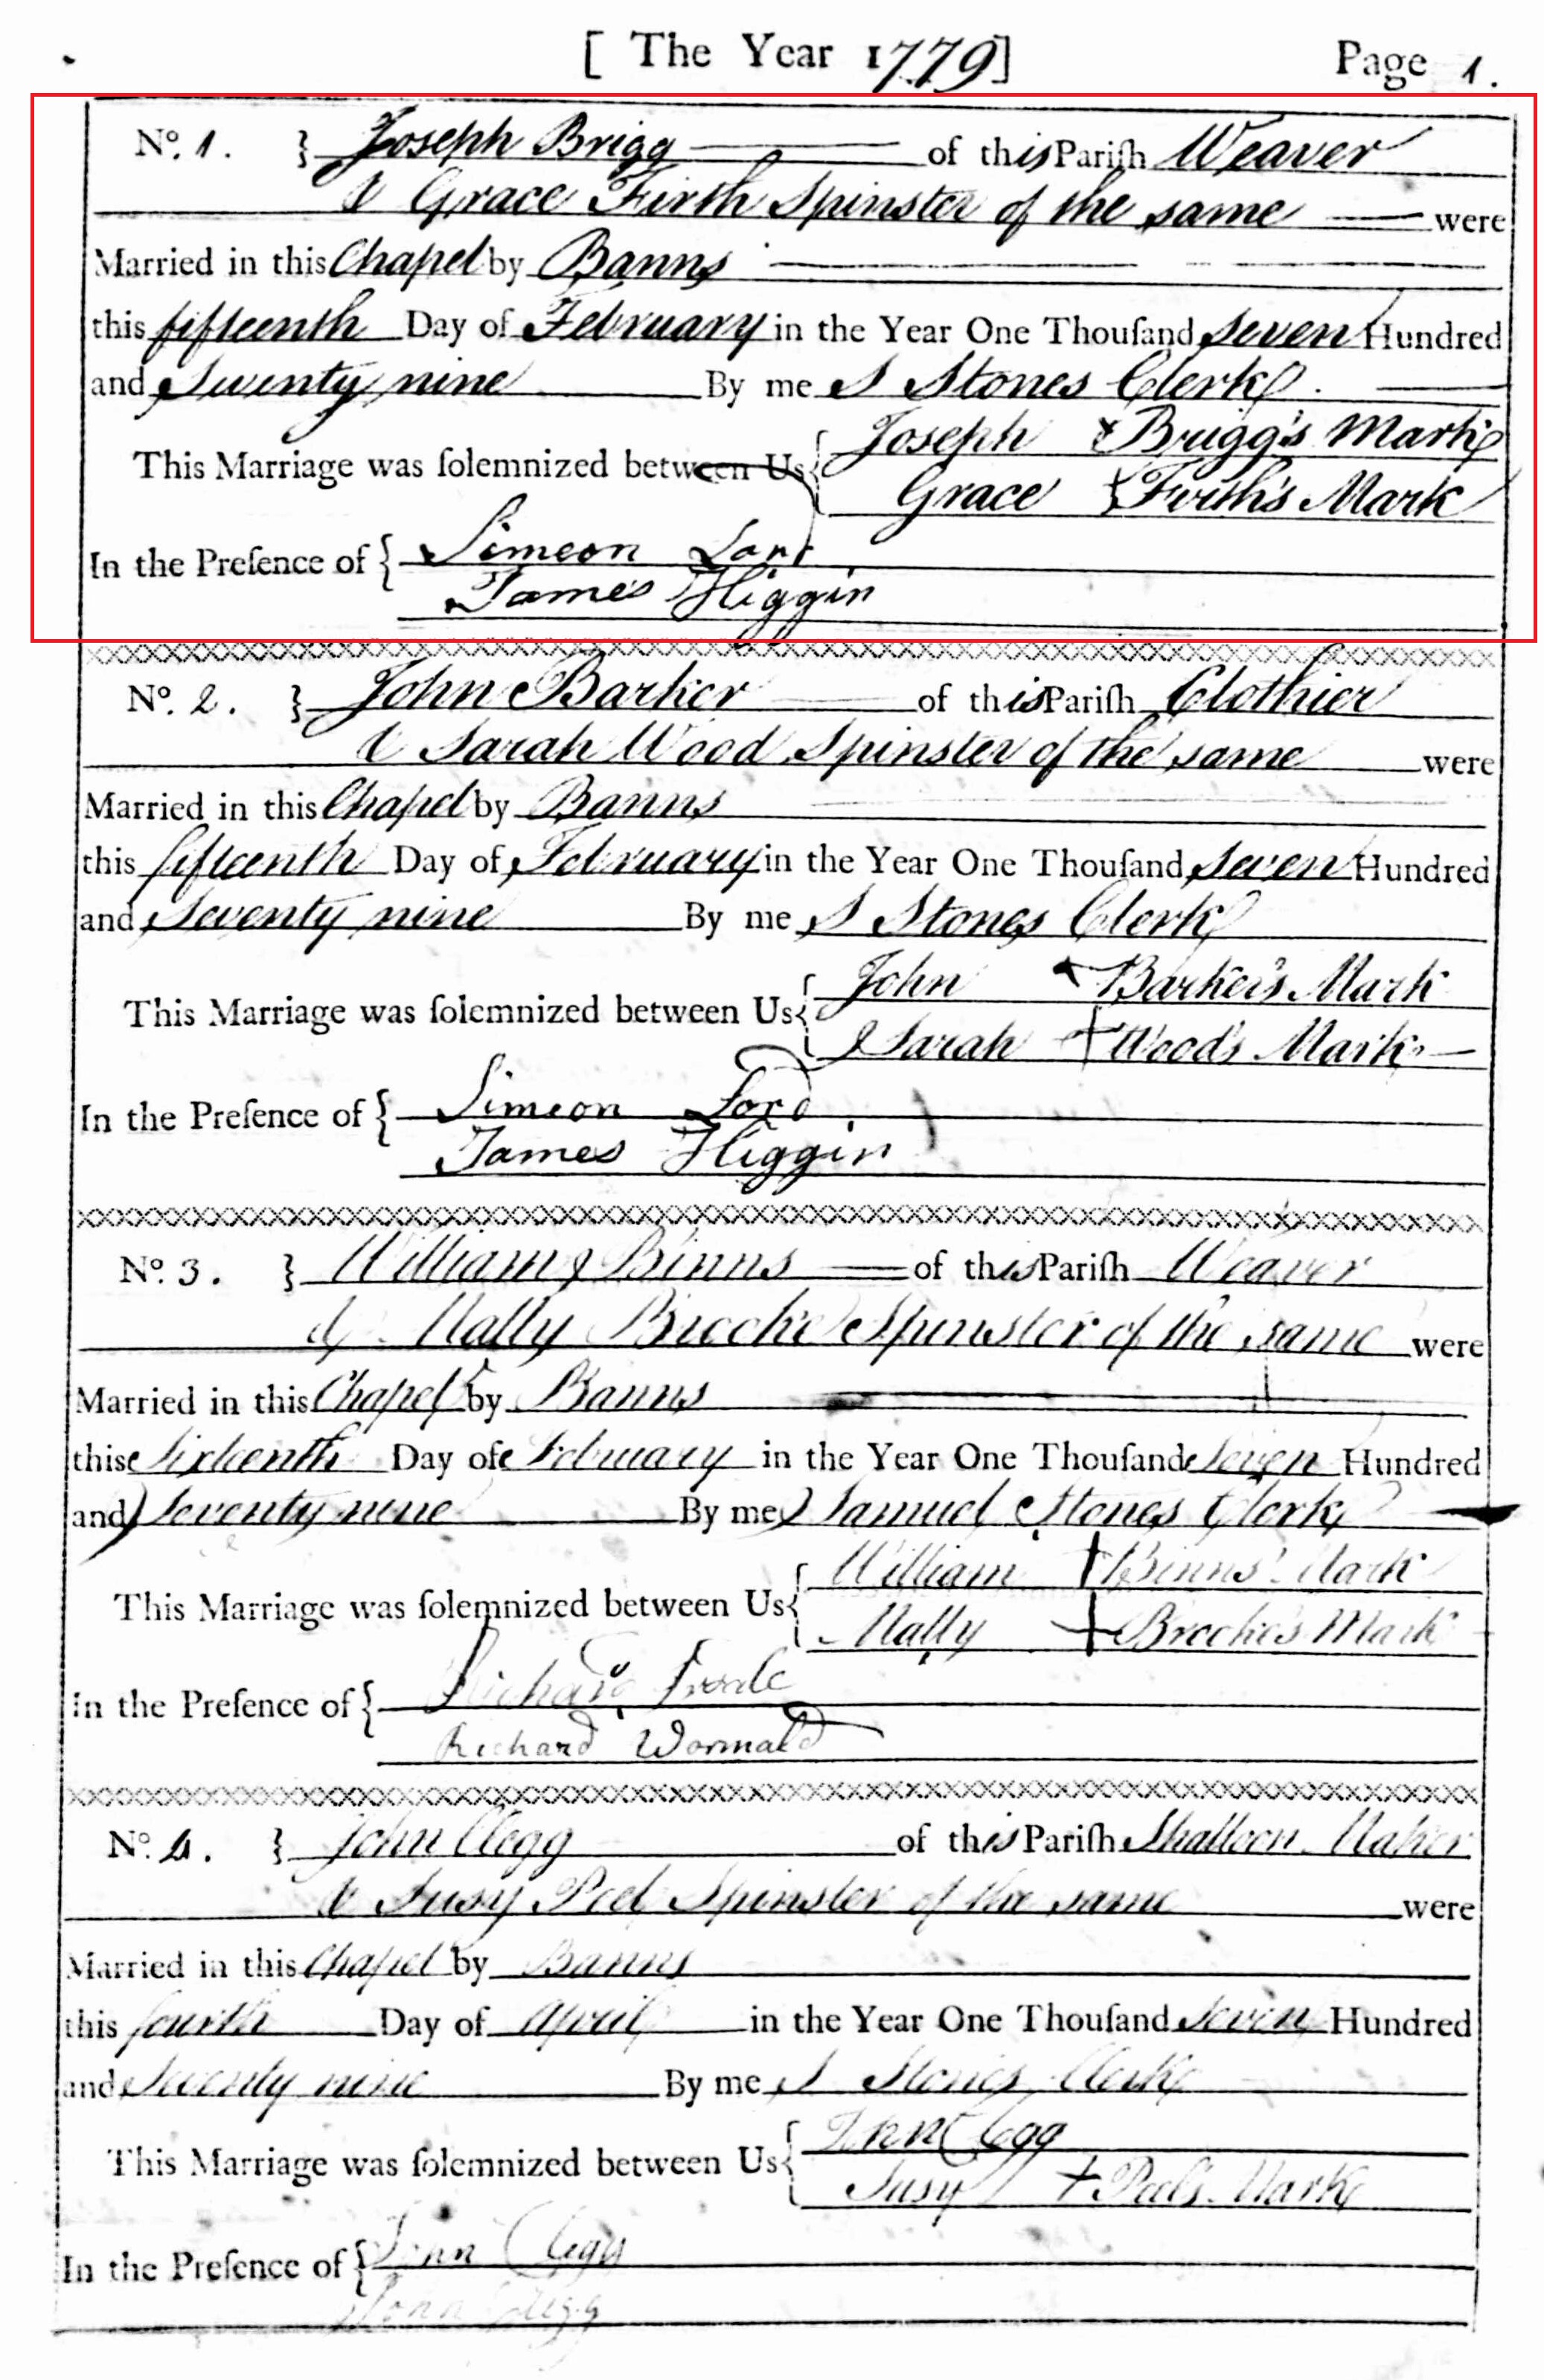 [ The Year 1779] Page 1.
No. 1. } Joseph Brigg of this Pariſh Weaver
& Grace Firth Spinster of the same were
Married in this Chapel by Banns
this fifteenth Day of February in the Year One Thouſand seven Hundred
and Seventy nine By me S Stones Clerk
This Marriage was ſolemnized between Us { Joseph x Brigg's Mark
Grace x Firth's Mark
In the Preſence of { Simeon Lord
James Higgin
No. 2. } John Barker of this Pariſh Clothier
& Sarah Wood Spinster of the same were
Married in this Chapel by Banns
this fifteenth Day of February in the Year One Thouſand seven Hundred
and Seventy nine By me S Stones Clerk
This Marriage was ſolemnized between Us { John Barker's Mark
Sarah + Wood's Mark
In the Preſence of { Simeon Lord
James Higgin
No. 3. } William Binns of this Pariſh Weaver
& Mally Brooke Spinster of the same were
Married in this Chapel by Banns
this Sixteenth Day of February in the Year One Thouſand Seven Hundred
and Seventy nine By me Samuel Stones Clerk
This Marriage was ſolemnized between Us { William + Binns' Mark
Mally + Brooke's Mark
In the Preſence of { Richard
Richard Wormald
No. 4. } John Clegg of this Pariſh Shalloon Maker
& Susy Peel Spinster of the same were
Married in this Chapel by Banns
this fourth Day of April in the Year One Thouſand Seven Hundred
and Seventy nine By me S Stones Clerk
This Marriage was ſolemnized between Us { John Clegg
Susy + Peel's Mark
In the Preſence of { John Clegg